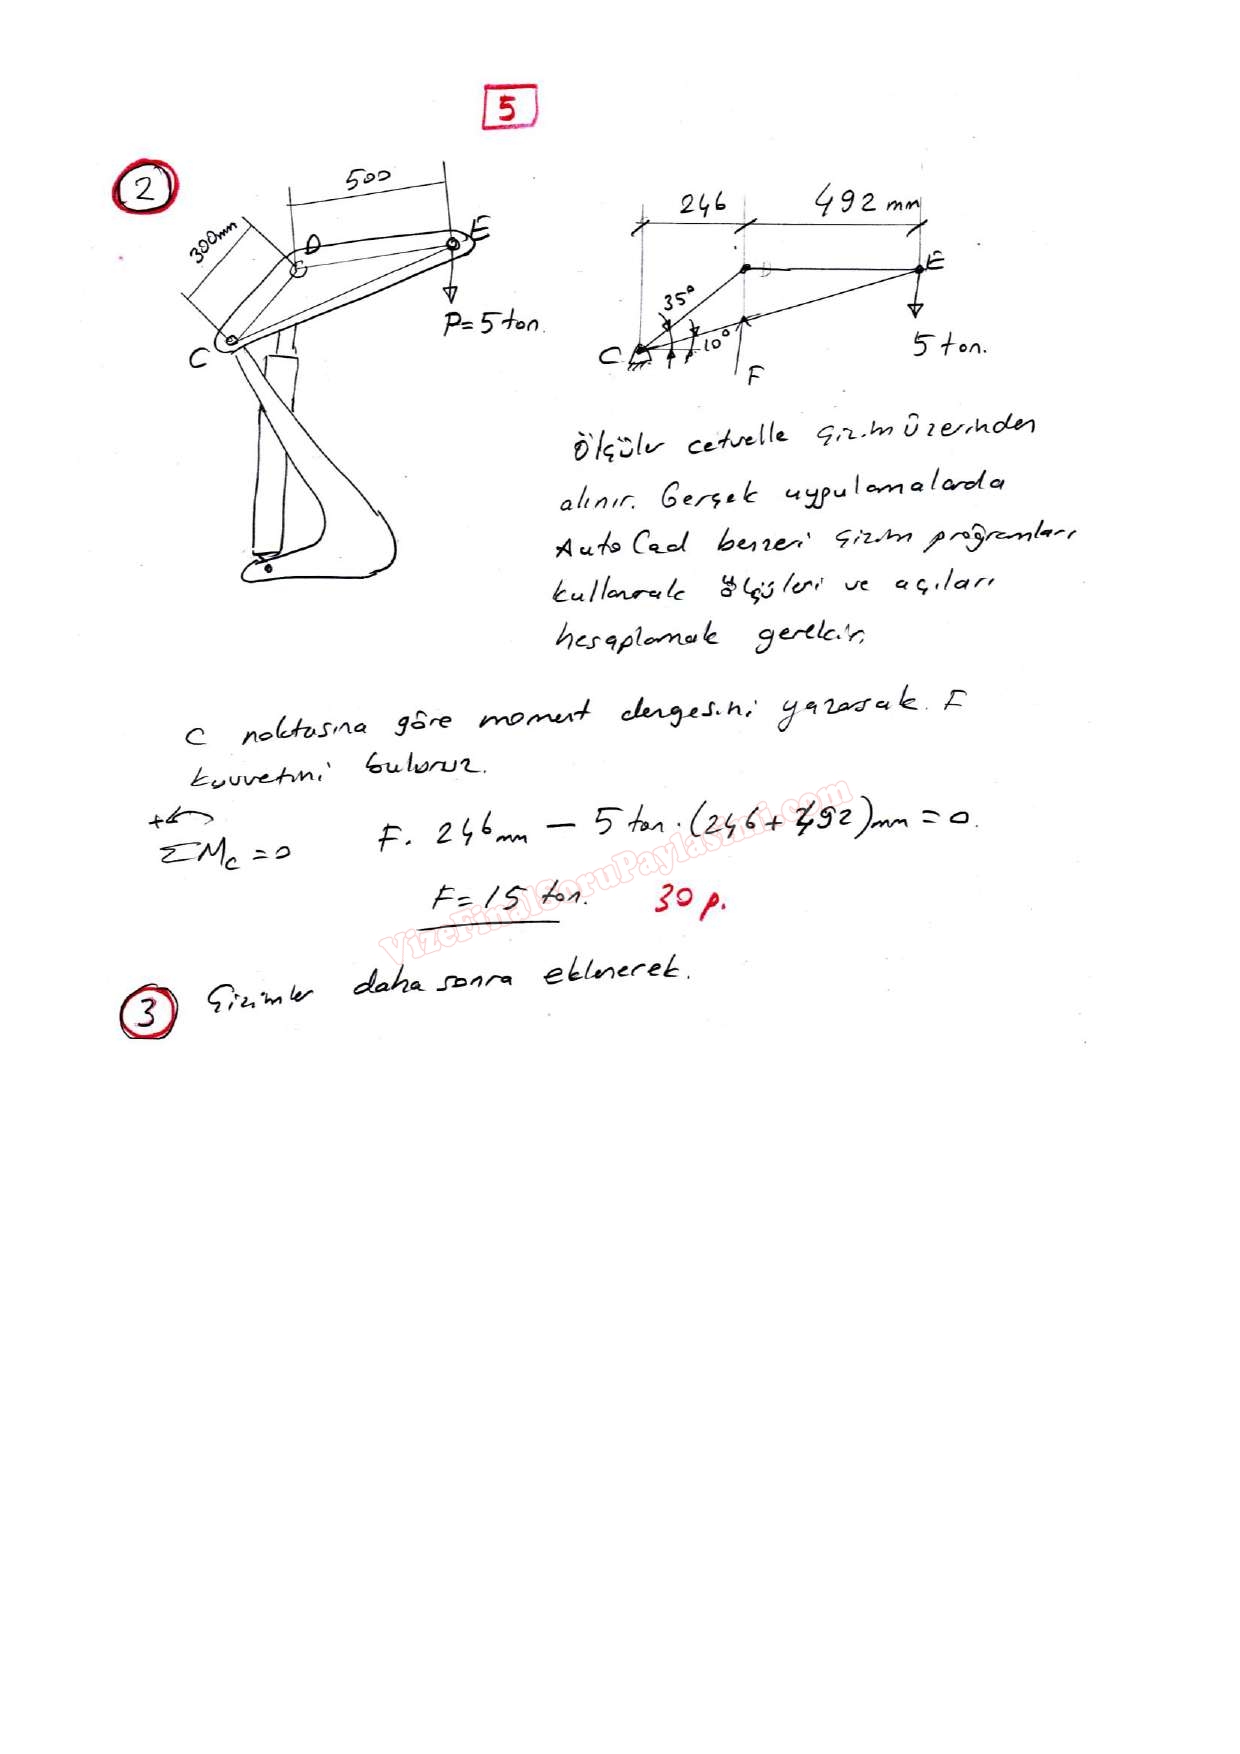 5
2
500
300mm
D
E
C
P=5 ton.
246
492 mm
D
E
35°
10°
C
F
5 ton.
Ölçüler cetvelle çizim üzerinden
alınır. Gerçek uygulamalarda
AutoCad benzeri çizim proğramları
kullanarak ölçüleri ve açıları
hesaplamak gerekir.
C noktasına göre moment dengesini yazarsak. F
kuvvetini buluruz.
+
ΣMc=0
F. 246mm − 5 ton.(246+492)mm=0.
F=15 ton.
30 p.
VizeFinalSoruPaylasimi.com
3
Çizimler daha sonra eklenecek.